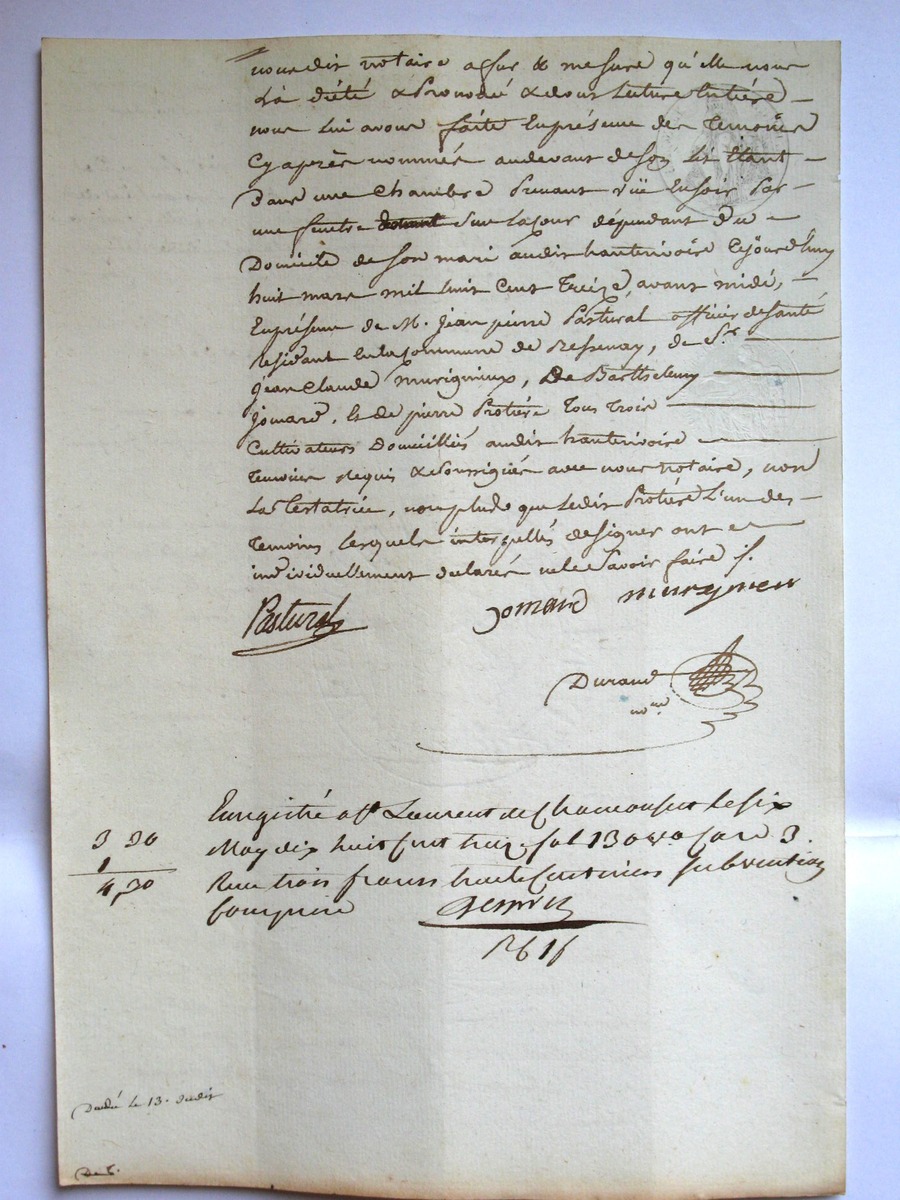 nous dit notaire a fur & mesure qu'elle nous
l'a dicté & prononcé & dont lecture entière
nous lui avons faite en présence des temoins
cy après nommés au devant de son lit étant
dans une chambre prenant vüe en soir par
une fenêtre donnant sur la cour dépendant du
domicile de son mari audit hauterivoire cejourd'huy
huit mars mil huit cent treize, avant midi,
en présence de M. jean pierre Pastural officier de santé
résidant en la commune de Ressenay, de Sr.
jean Claude murigneux, de Barthelemy
jomard, et de pierre Protière tous trois
cultivateurs domiciliés audit hauterivoire
temoins requis & soussignés avec nous notaire, non
la testatrice, non plus de que ledit Protière l'un des
temoins lesquels interpellés de signer ont
individuellement declarés ne le savoir faire /.
Pastural jomard murigneux
Durand
nore
Enregistré a St Laurent de Chamousset le six
3 30 May dix huit cent treize fol 130 vo Case 3.
1 Reçu trois francs trente centimes subvention
4,30 comprise
R6 15
13. dudit